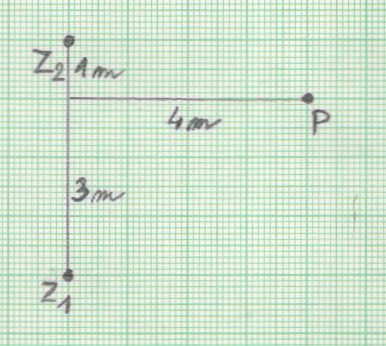 Z2
1m
4m
P
3m
Z1